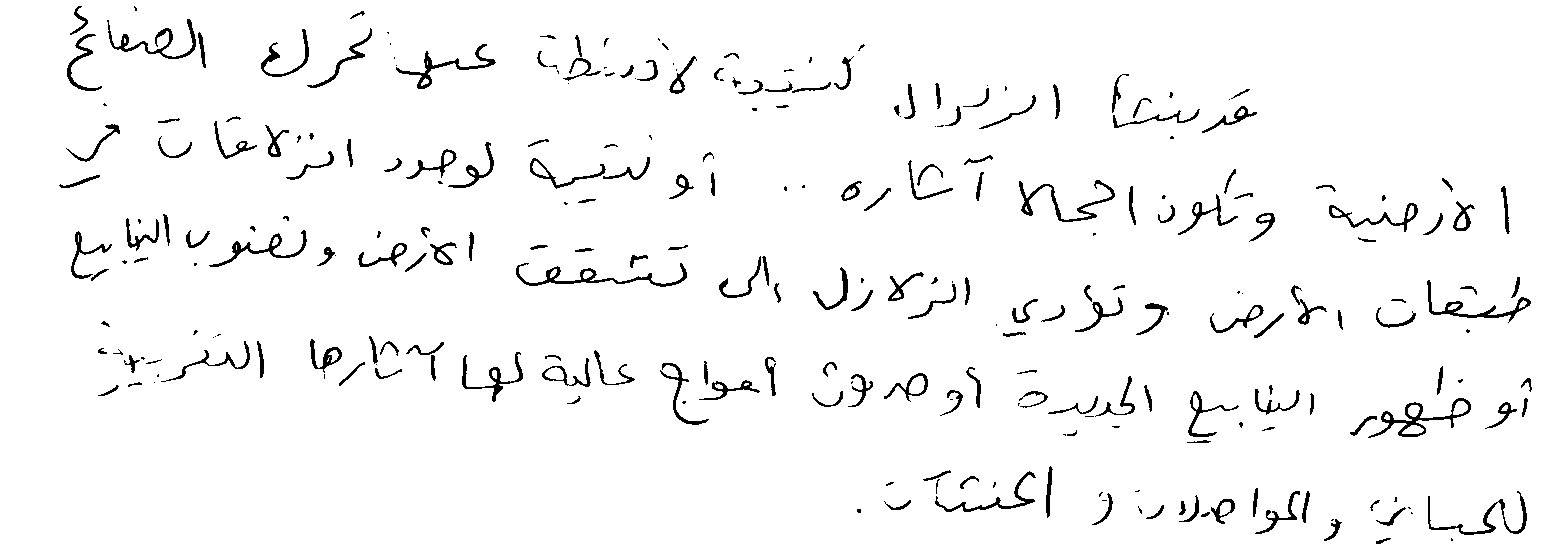 قد ينشأ الزلزال كنتيجة لأنشطة تحرك الصفائح
الأرضية وتكون آثاره .. أو نتيجة لوجود انزلاقات في
طبقات الأرض وتؤدي الزلازل إلى تشقق الأرض ونضوب الينابيع
أو ظهور الينابيع الجديدة أو حدوث أمواج عالية لها آثارها التخريبية
للمباني والمواصلات والمنشآت.